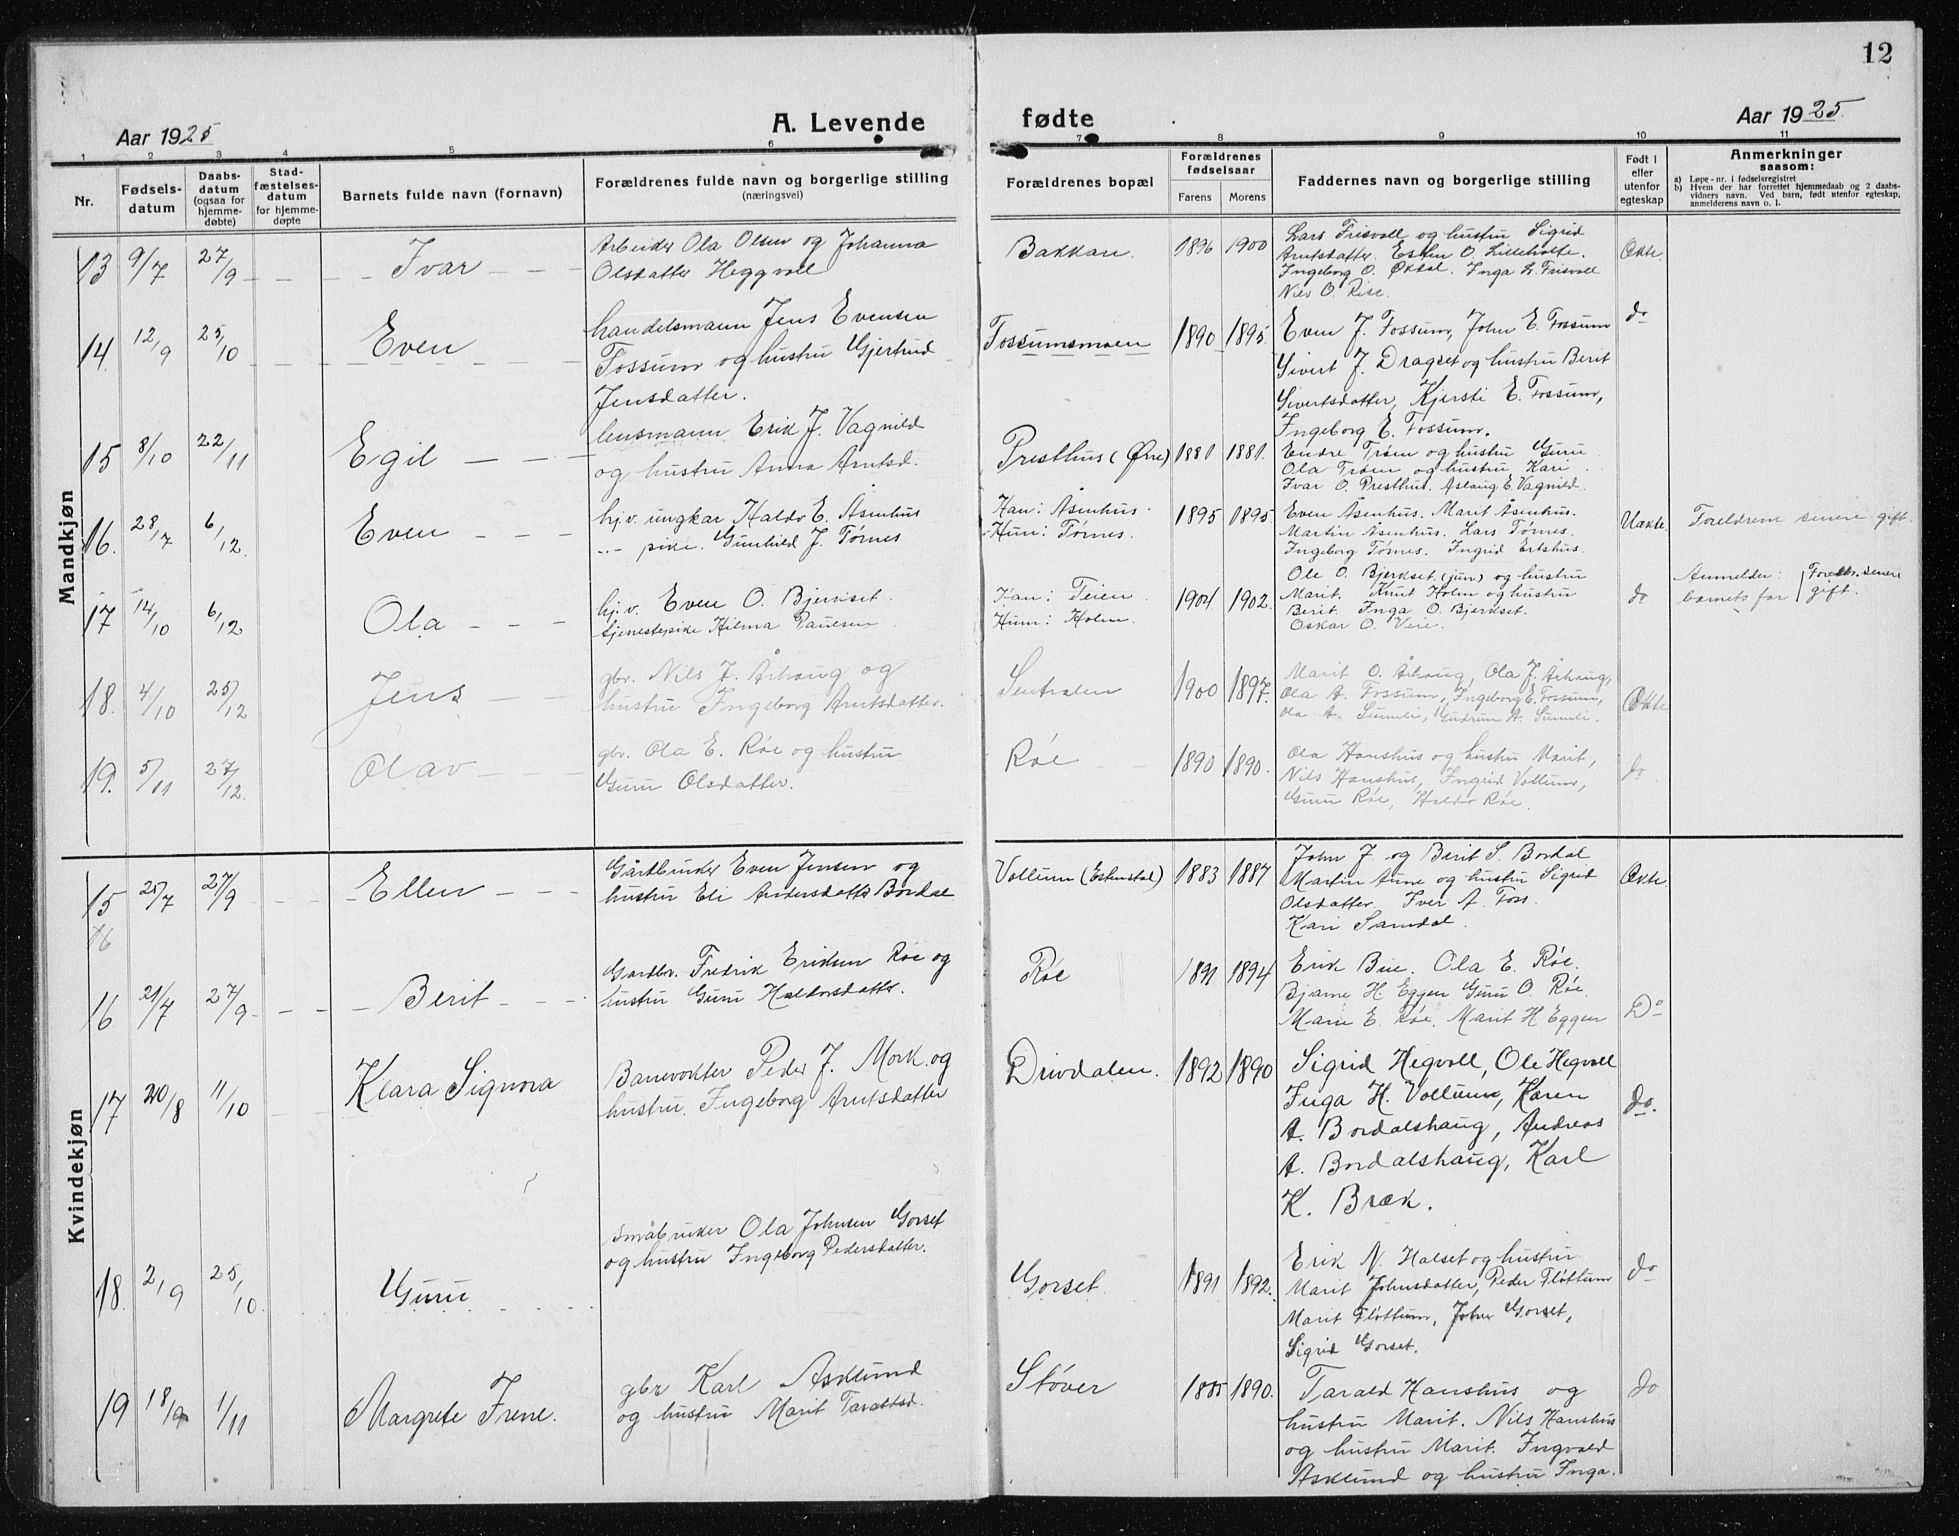 12
Aar 1925
A. Levende
fødte
Aar 1925.
1 2 3 4 5 6 7 8 9 10 11
Nr.
Fødsels-
datum
Daabs-
datum
(ogsaa for
hjemme-
døbte)
Stad-
fæstelses-
datum
for hjemme-
døpte
Barnets fulde navn (fornavn)
Forældrenes fulde navn og borgerlige stilling
(næringsvei)
Forældrenes bopæl
Forældrenes
fødselsaar
Farens Morens
Faddernes navn og borgerlige stilling
Født i
eller
utenfor
egteskap
Anmerkninger
saasom:
a) Løpe-nr. i fødselsregistret
b) Hvem der har forrettet hjemmedaab og 2 daabs-
vidners navn. Ved barn, født utenfor egteskap,
anmelderens navn o. l.
Mandkjøn
13 9/7 27/9 Ivar
Arbeider Ola Olsen og Johanna
Olsdatter Heggvoll
Bakkan. 1896 1900
Lars Frisvoll og hustru Sigrid
Arntsdatter. Esten O. Lilleholte.
Ingeborg O. Økdal. Inga L. Frisvoll
Nils O. Rise.
Ekte.
14 12/9 25/10 Even
handelsmann Jens Evensen
Fossum og hustru Gjertrud
Jensdatter.
Fossumsmoen 1890 1895.
Even J. Fossum, John E. Fossum
Sivert J. Dragset og hustru Berit
Sivertsdatter, Kjersti E. Fossum,
Ingeborg E. Fossum.
do
15 8/10 22/11 Egil
lensmann Erik J. Vagnild
og hustru Anna Arntsd.
Presthus (Øvre) 1881 1881.
Endre Trøen og hustru Guru
Ola Trøen og hustru Kari
Ivar O. Presthus. Aslaug E. Vagnild.
16. 28/7 6/12. Even
hj.v. ungkar Haldo E. Åsenhus
--- pike. Gunhild J. Tørnes
Han: Åsenhus.
Hun: Tørnes.
1895 1895
Even Åsenhus. Marit Åsenhus.
Martin Åsenhus. Lars Tørnes.
Ingeborg Tørnes. Ingrid Ertshus.
Uekte.
Foreldrene senere gift.
17 14/10 6/12 Ola
hj.v. Even O. Bjerkset.
tjenestepike Hilma Paulsen
Han: Teien
Hun: Holm.
1904 1902.
Ole O. Bjerkset (jun) og hustru
Marit. Knut Holm og hustru
Berit. Inga O. Bjerkset.
Oskar O. Veie.
do
Anmelder:
barnets far
Foreldr. senere
gift.
18. 4/10 25/12 Jens
gbr. Nils J. Århaug og
hustru Ingeborg Arntsdatter.
Sentralen 1900 1897.
Marit O. Århaug, Ola J. Århaug,
Ola A. Fossum, Ingeborg E. Fossum,
Ola A. Sumli, Gudrun A. Sumli.
Ekte
19. 5/11 27/12. Olav
gbr. Ola E. Røe og hustru
Guru Olsdatter.
Røe 1890 1890.
Ola Hanshus og hustru Marit,
Nils Hanshus, Ingrid Vollum,
Guru Røe, Haldo Røe.
do
Kvindekjøn
15 25/7 27/9 Ellen
16
Gårdbruker Even Jensen og
hustru Eli Andersdatter Bordal
Vollum (Estenstal) 1883 1887
John J. og Berit S. Bordal
Martin Aune og hustru Sigrid
Olsdatter. Iver A. Foss.
Kari Samdal.
Ekte.
16 21/7 27/9 Berit
Gardbr. Fredrik Eriksen Røe og
hustru Guru Haldorsdatter.
Røe 1891 1894
Erik Bue. Ola E. Røe.
Bjarne H. Eggen Guru O. Røe.
Marie E. Røe. Marit H Eggen
Do
17 20/8 11/10 Klara Signora
Banevokter Peder J. Mork og
hustru Ingeborg Arntsdatter
Drivdalen. 1892 1890
Sigrid Hegvoll, Ole Hegvoll
Inga H. Vollum, Karen
A. Bordalshaug, Andreas
A. Bordalshaug, Karl
K. Bræk.
do.
18. 2/9 25/10. Guru
Småbruker Ola Johnsen Gorset
og hustru Ingeborg Pedersdatter.
Gorset. 1891 1892.
Erik N. Halset og hustru
Marit Johnsdatter, Peder Fløttum
Marit Fløttum, John Gorset,
Sigrid Gorset.
do
19 18/9 1/11 Margrete Irene.
gbr Karl Asklund
og hustru Marit Taraldsd.
Støver 1885 1890.
Tarald Hanshus og
hustru Marit. Nils Hanshus
og hustru Marit. Ingvald
Asklund og hustru Inga.
do